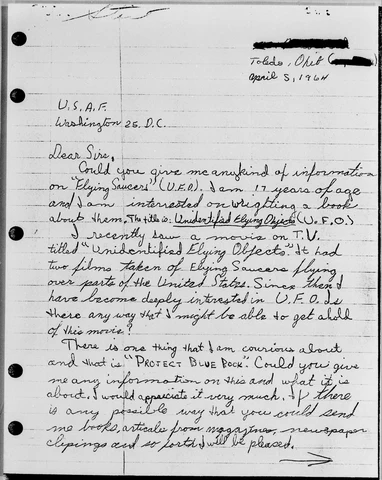 Toledo, Ohio
April 5, 1964
U.S.A.F.
Washington 25, D.C.
Dear Sirs,
Could you give me anykind of information
on "Flying Saucers" (U.F.O). I am 17 years of age
and I am interested on wrighting a book
about them. The title is: Unidentified Flying Objects (U.F.O.)
I recently saw a movie on T.V.
titled "Unidentified Flying Objects." It had
two films taken of Flying Saucers flying
over parts of the United States. Since then I
have become deeply interested in U.F.O. Is
there any way that I might be able to get ahold
of this movie?
There is one thing that I am courious about
and that is "PROJECT BLUE BOOK". Could you give
me any information on this and what it is
about. I would appreciate it very much. If there
is any possible way that you could send
me books, articales from magazines, newspaper
clipings and so forth I will be pleased.